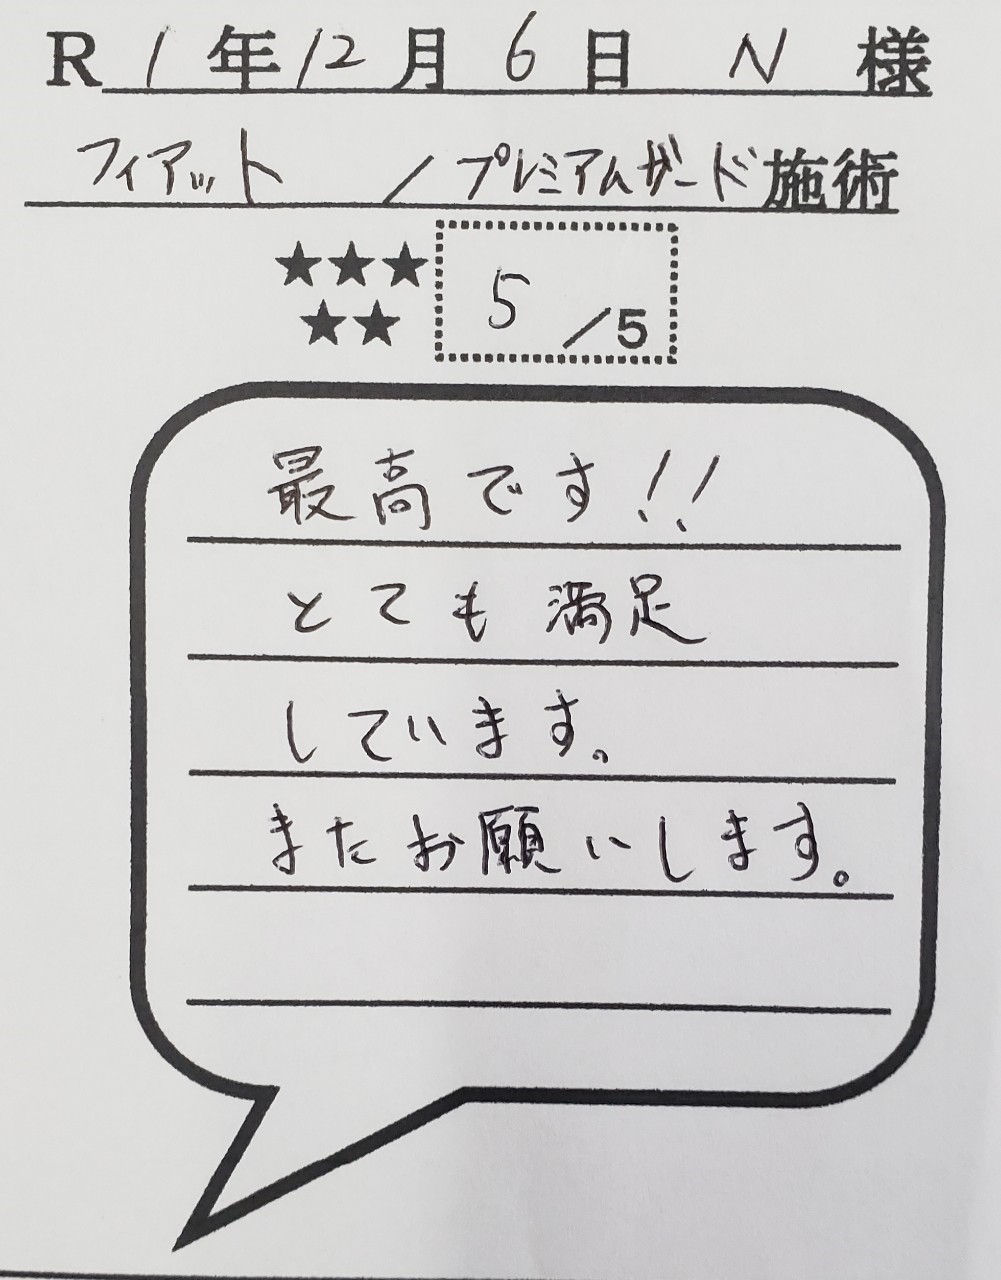 R1年12月6日 N 様
フィアット / プレミアムガード施術
★★★
★★
5/5
最高です!!
とても満足
しています。
またお願いします。